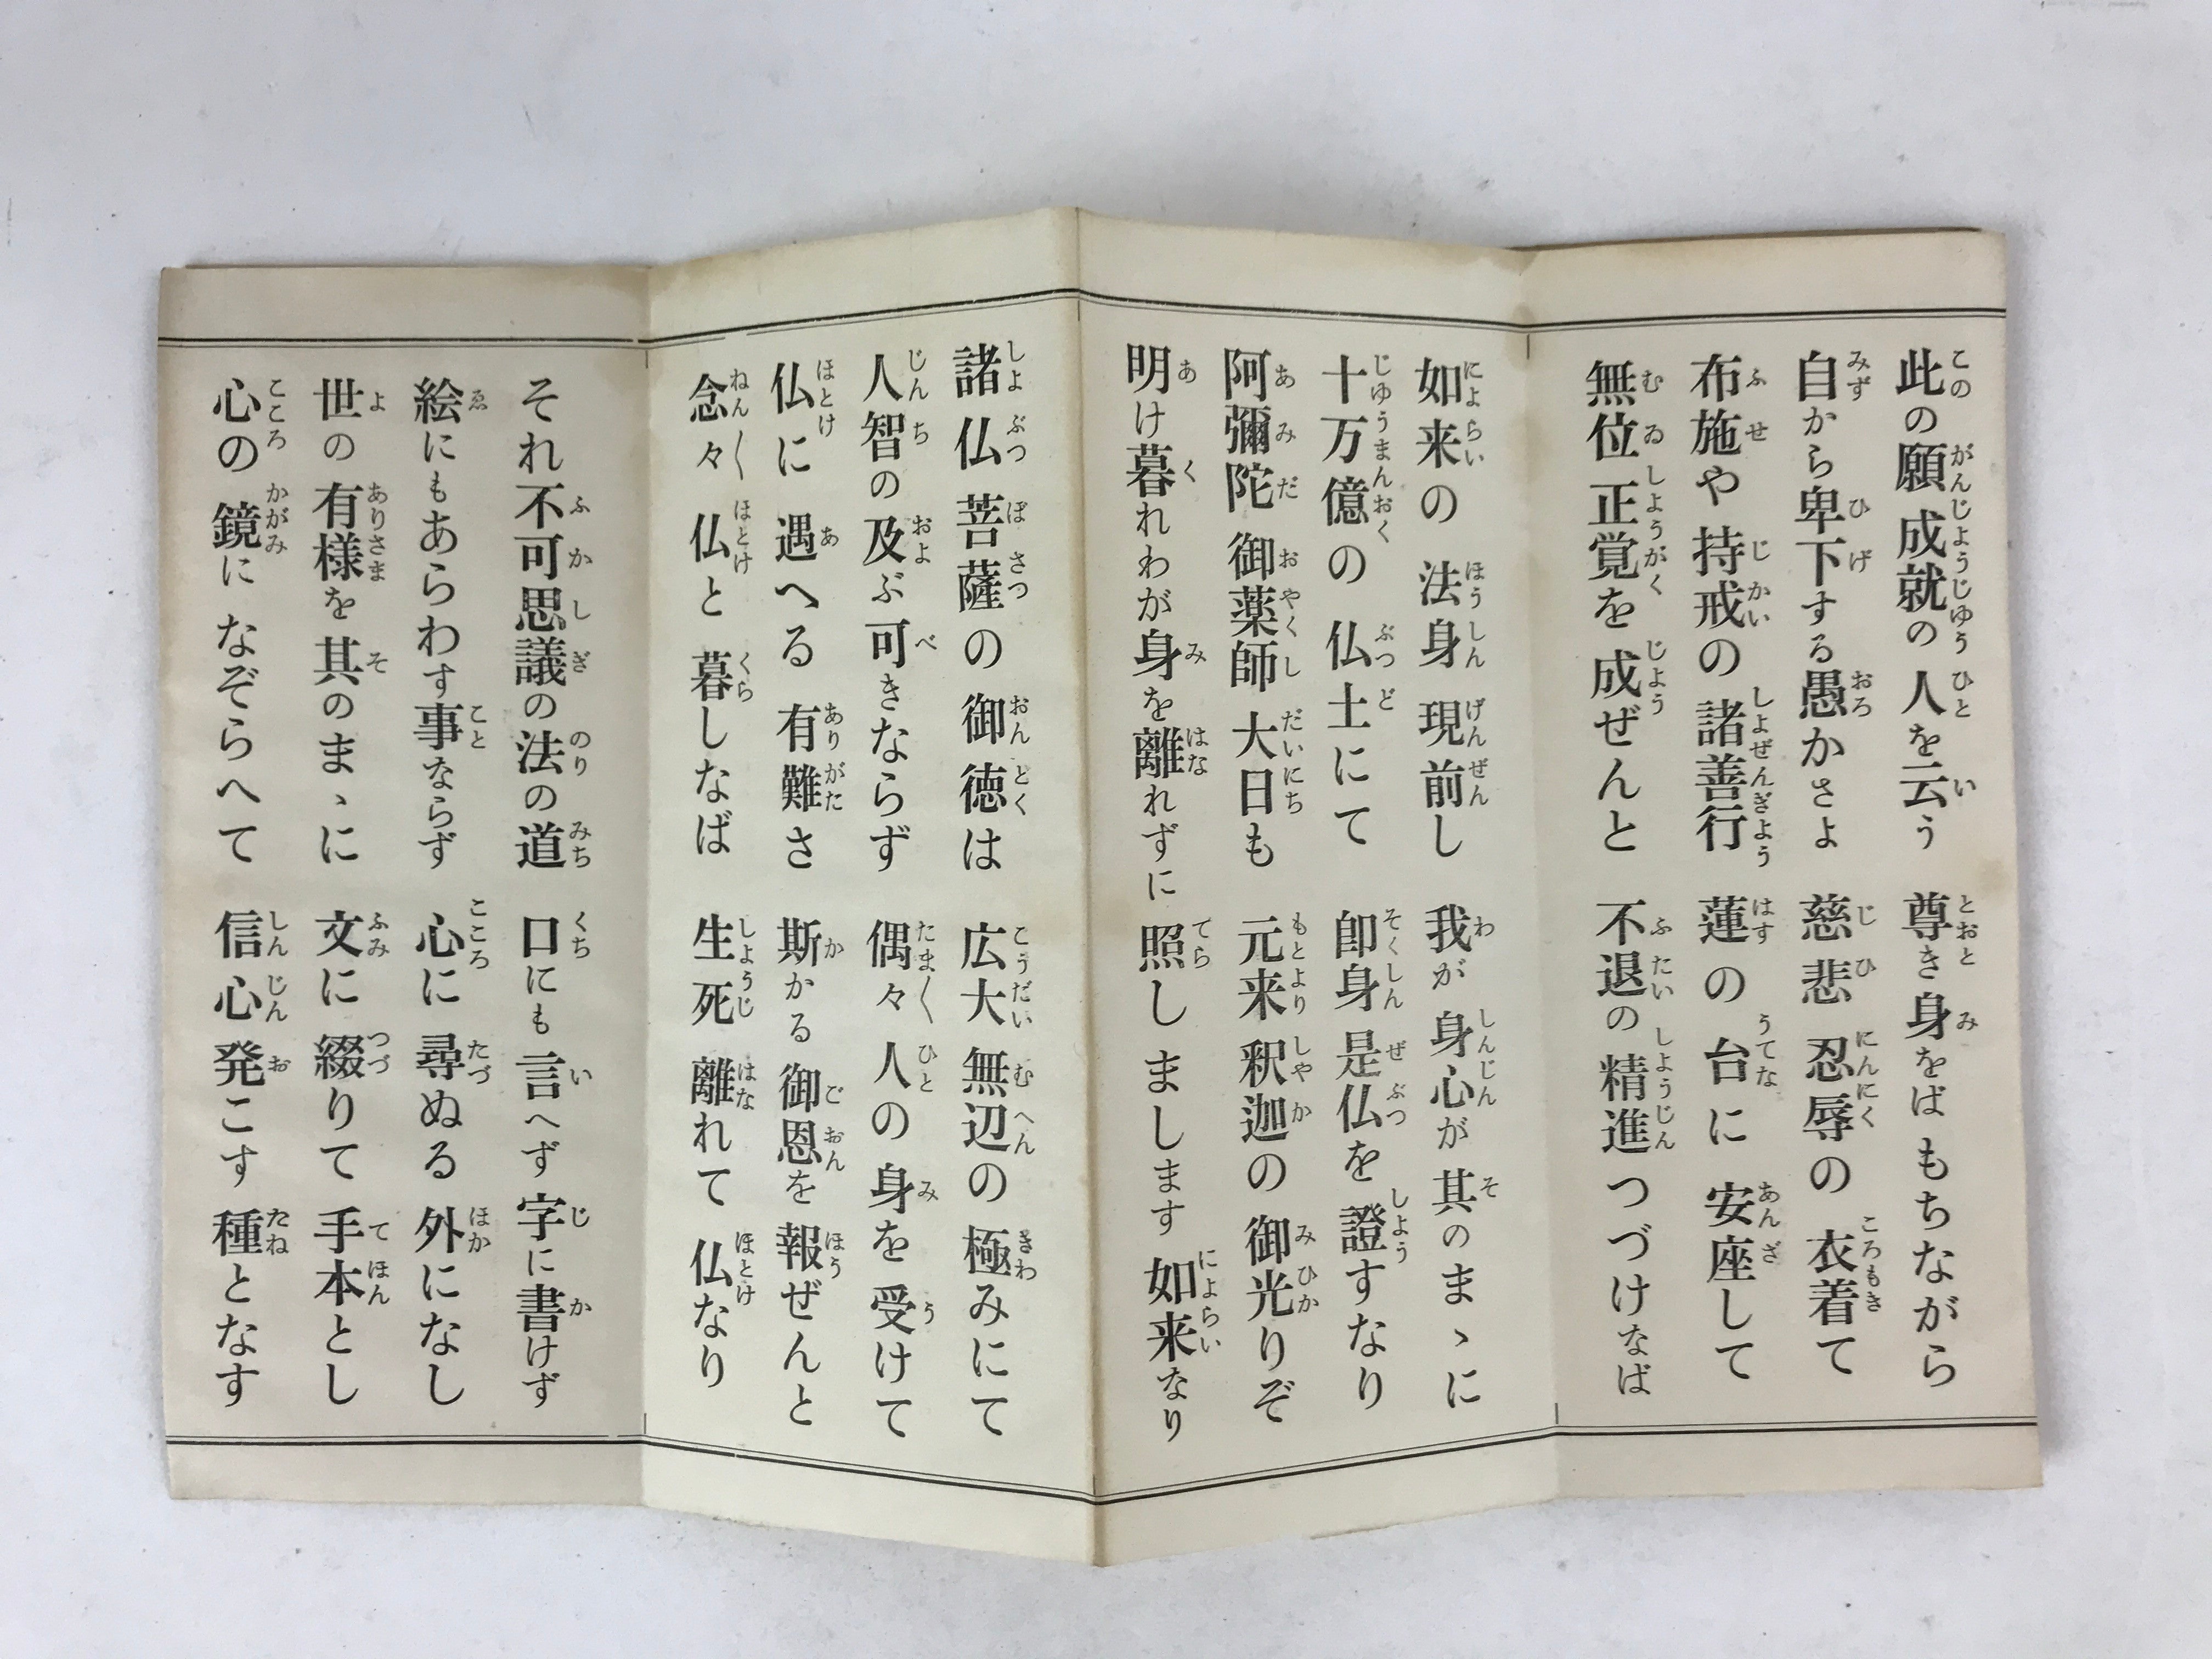 此の願成就の人を云う 尊き身をば もちながら
自から卑下する愚かさよ 慈悲忍辱の衣着て
布施や持戒の諸善行 蓮の台に安座して
無位正覚を成ぜんと 不退の精進つづけなば
如来の法身現前し 我が身心が其のまゝに
十万億の仏土にて 即身是仏を證すなり
阿彌陀御薬師大日も 元来釈迦の御光りぞ
明け暮れわが身を離れずに 照しまします如来なり
諸仏菩薩の御徳は 広大無辺の極みにて
人智の及ぶ可きならず 偶々人の身を受けて
仏に遇へる有難さ 斯かる御恩を報ぜんと
念々仏と暮しなば 生死離れて仏なり
それ不可思議の法の道 口にも言へず字に書けず
絵にもあらわす事ならず 心に尋ぬる外になし
世の有様を其のまゝに 文に綴りて手本とし
心の鏡になぞらへて 信心発こす種となす